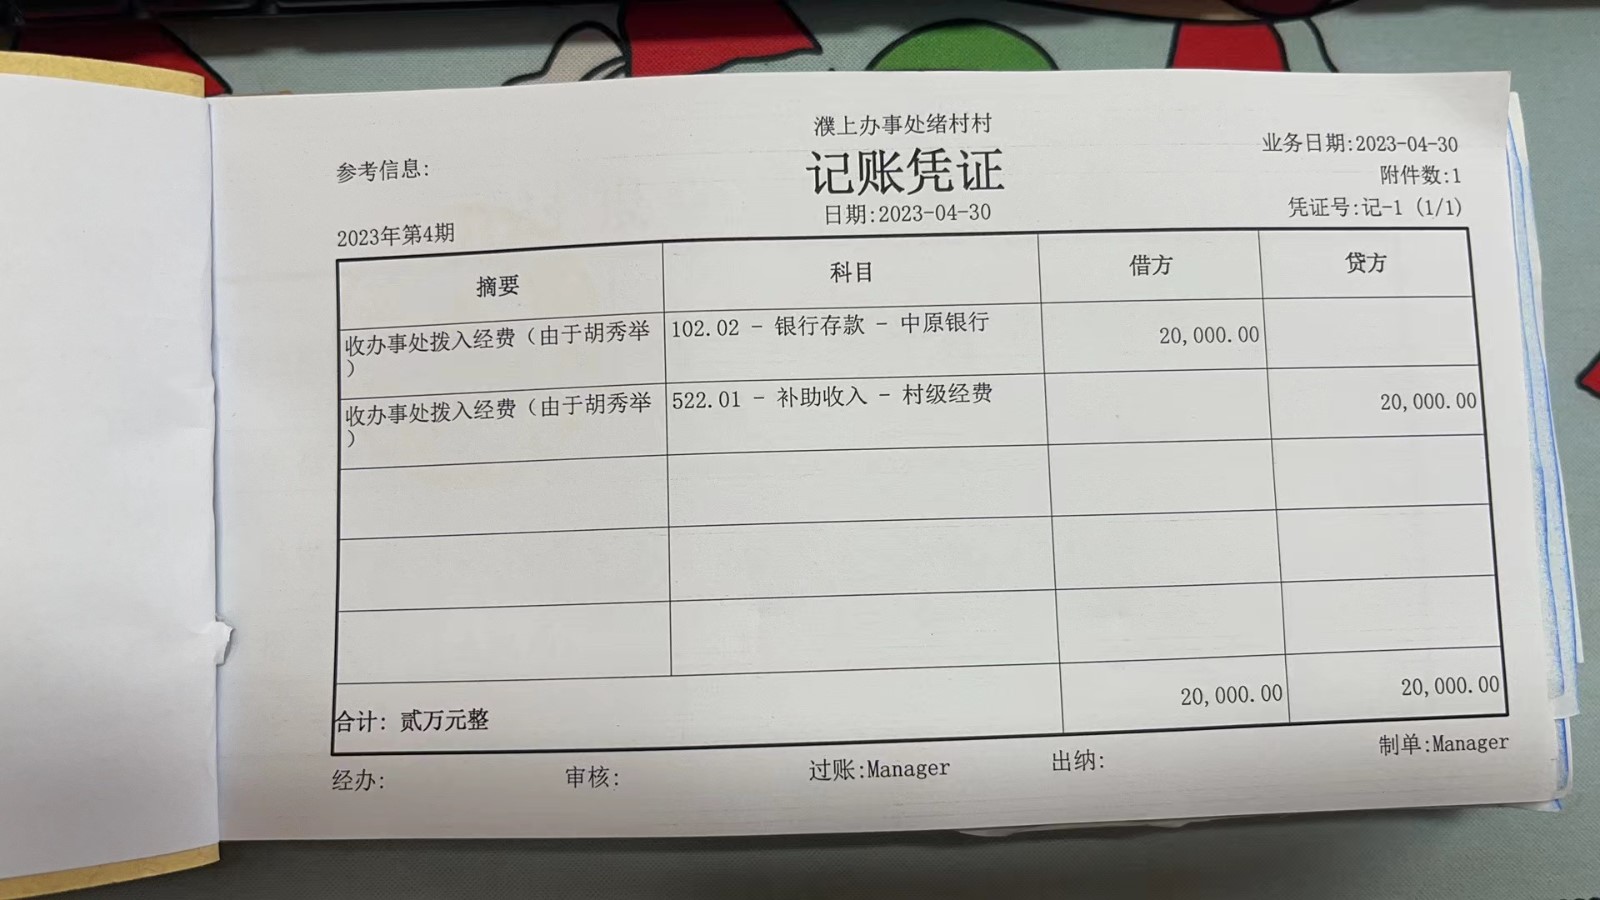 濮上办事处绪村村
参考信息:
记账凭证
业务日期:2023-04-30
附件数:1
日期:2023-04-30
凭证号:记-1 (1/1)
2023年第4期
摘要 科目 借方 贷方
收办事处拨入经费（由于胡秀举 102.02 - 银行存款 - 中原银行 20,000.00
）
收办事处拨入经费（由于胡秀举 522.01 - 补助收入 - 村级经费 20,000.00
）
合计: 贰万元整 20,000.00 20,000.00
经办: 审核: 过账:Manager 出纳: 制单:Manager